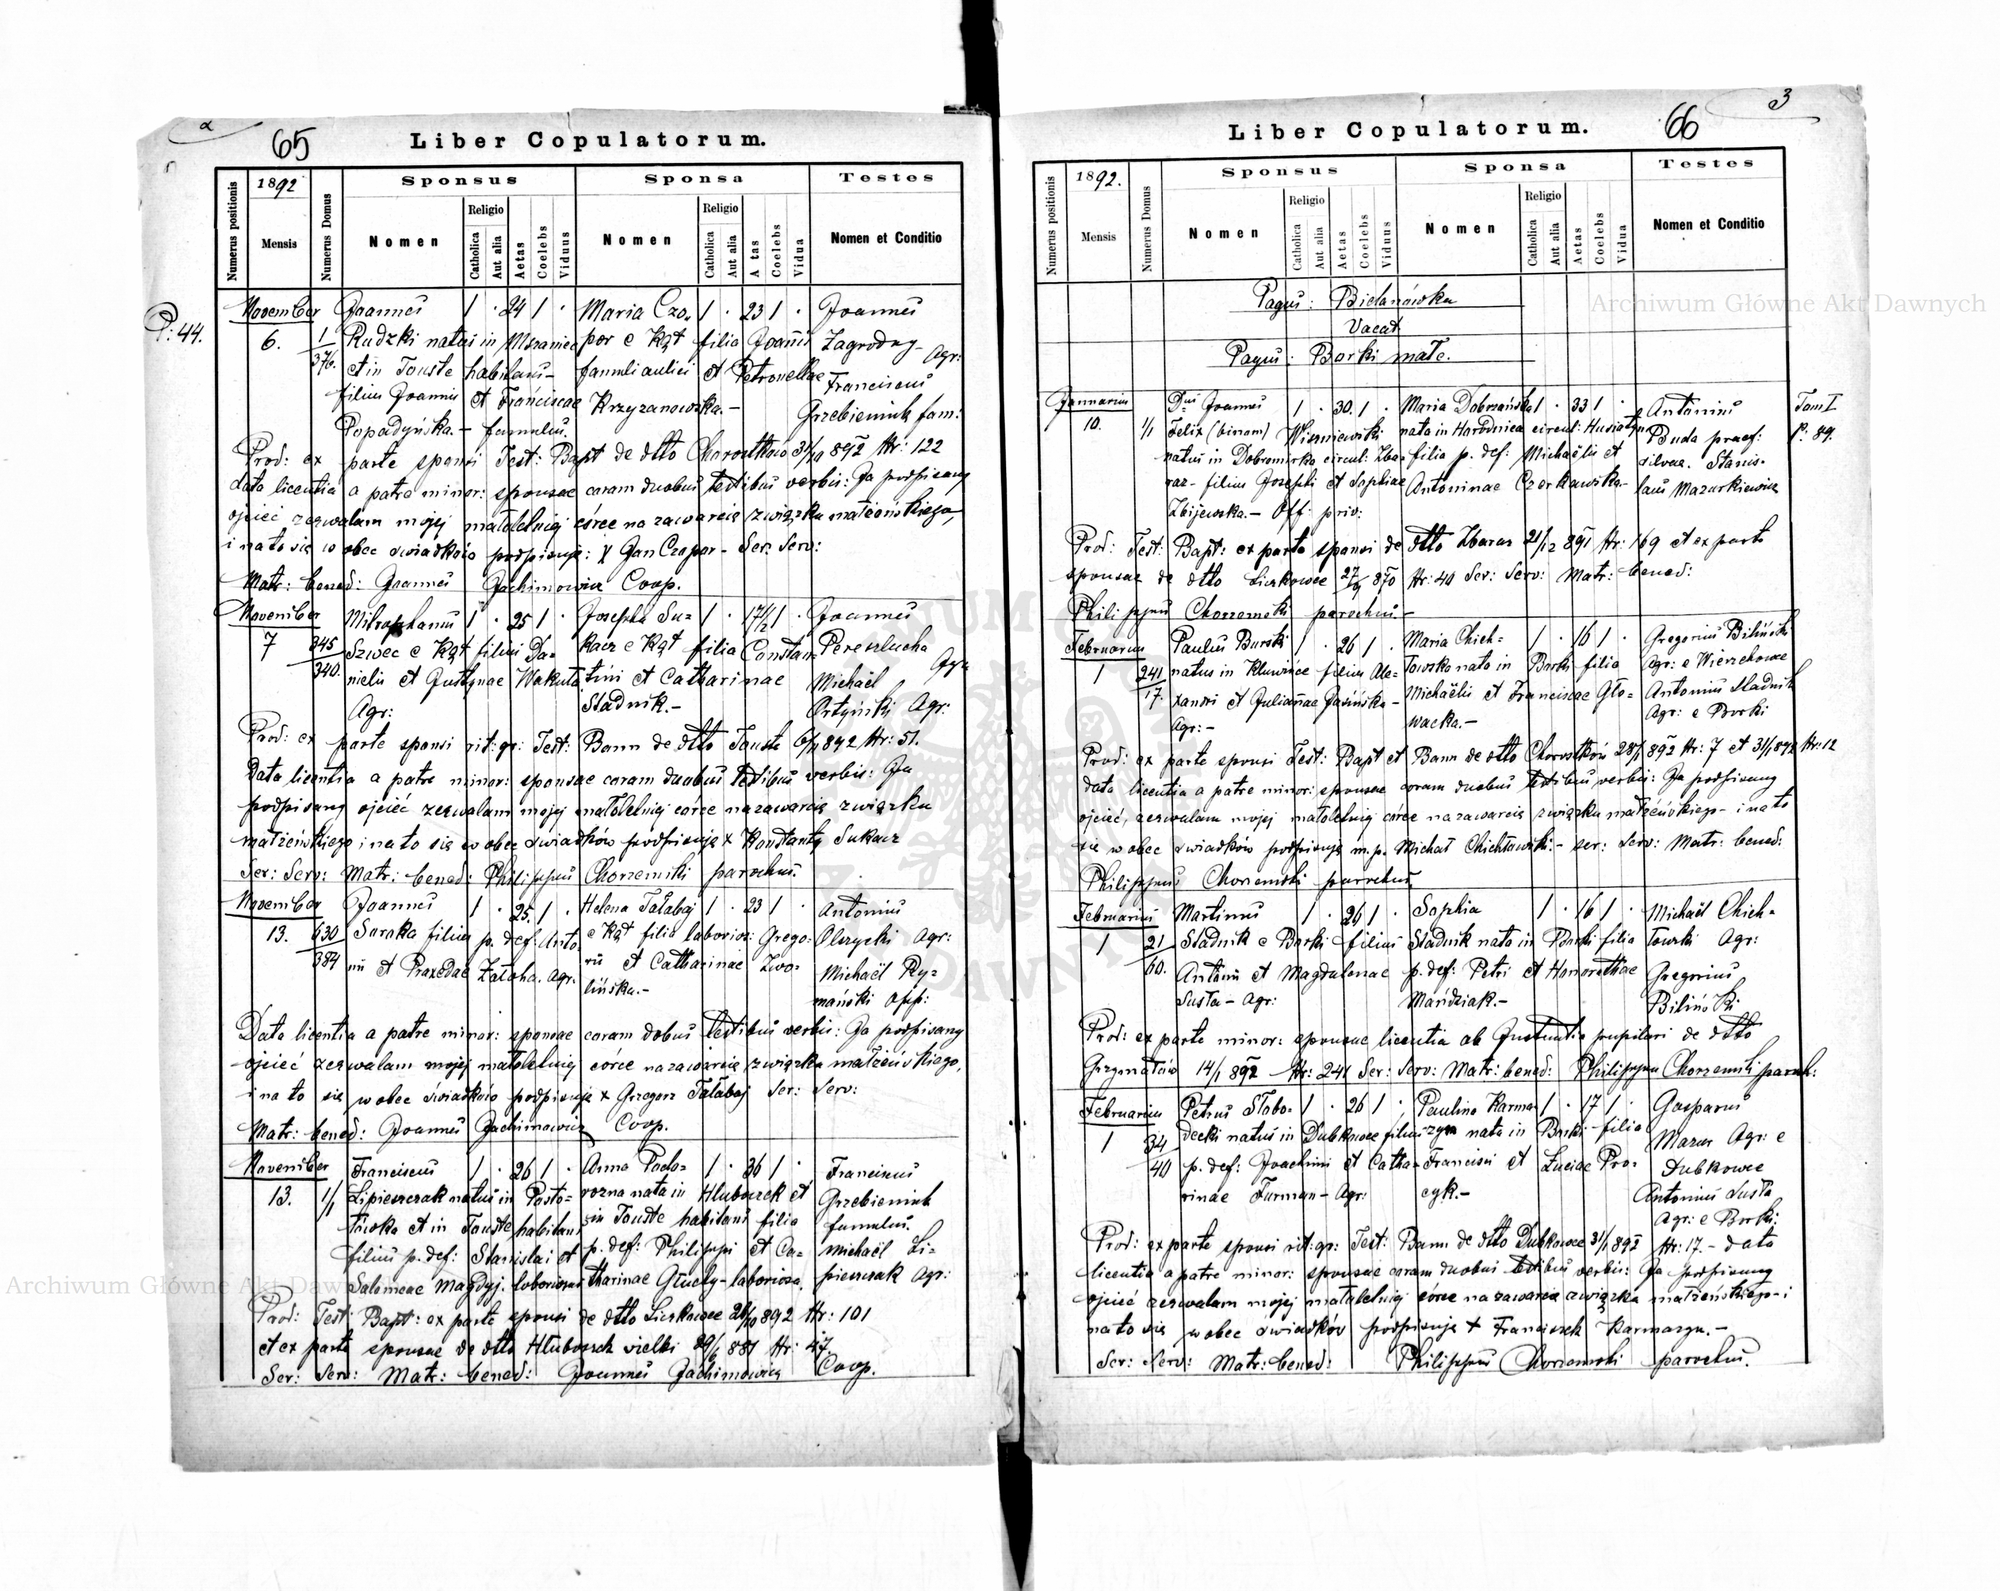 2
65
Liber Copulatorum.
Numerus positionis
1892
Mensis
Numerus Domus
Sponsus
Nomen
Religio
Catholica
Aut alia
Aetas
Coelebs
Viduus
Sponsa
Nomen
Religio
Catholica
Aut alia
Aetas
Coelebs
Vidua
Testes
Nomen et Conditio
P. 44.
November Joannes 1 · 24 1 · Maria Czo- 1 · 23 1 · Joannes
6. 1/376. Rudzki natus in Mszaniec por e Kąt filia Joannis Zagrodny - Agr:
et in Touste habitans - famuli aulici et Petronellae Franciscus
filius Joannis et Franciscae Krzyzanowska. - Grzebieniuk fam:
Popadyńska. - famulus.
Prod: ex parte sponsi Test: Bapt de dtto Chorostków 31/10 892 Nr: 122
data licentia a patre minor: sponsae coram duobus testibus verbis: Ja podpisany
ojciec zezwalam mojej małoletniej córce na zawarcie związku małżeńskiego,
i na to się w obec świadków podpisuję: X Jan Czopor - Ser: Serv:
Matr: bened: Joannes Jachimowicz Coop.
November Mitrophanus 1 · 25 1 · Josepha Su- 1 · 17 1/2 1 · Joannes
7 345/340. Szwec e Kąt filius Da- kacz e Kąt filia Constan- Pereszlucha Agr:
nielis et Justynae Wakuta tini et Catharinae Michaël
Agr: Stadnik. - Ortyński Agr:
Prod: ex parte sponsi rit: gr: Test: Bann de dtto Touste 6/11 892 Nr: 51.
Data licentia a patre minor: sponsae coram duobus testibus verbis: Ja
podpisany ojciec zezwalam mojej małoletniej córce na zawarcie związku
małżeńskiego i na to się w obec świadków podpisuję X Konstanty Sukacz
Ser: Serv: Matr: bened: Philippus Chorzemski parochus.
November Joannes 1 · 25. 1 · Helena Tałabaj 1 · 23 1 · Antonius
13. 630/384 Saraka filius p. def: Anto- e Kąt filia laborios: Grego- Olszycki Agr:
nii et Praxedae Załoha. Agr. rii et Catharinae Zwo- Michaël Ry-
lińska. - mański opp:
Data licentia a patre minor: sponsae coram dobus testibus verbis: Ja podpisany
ojciec zezwalam mojej małoletniej córce na zawarcie związku małżeńskiego,
i na to się w obec świadków podpisuję X Grzegorz Tałabaj Ser: Serv:
Matr: bened: Joannes Jachimowicz Coop.
November Franciscus 1 · 26 1 · Anna Podo- 1 · 36 1 · Franciscus
13. 1/1 Lipieszczak natus in Posto- rozna nata in Hluboczek et Grzebieniuk
łówka et in Touste habitans in Touste habitans filia famulus.
filius p. def: Stanislai et p. def: Philippi et Ca- Michaël Li-
Salomeae Magdyj. laboriosus tharinae Głuchy - laboriosa. pieszczak Agr:
Prod: Test: Bapt: ex parte sponsi de dtto Liczkowce 26/10 892 Nr: 101
et ex parte sponsae de dtto Hluboczek wielki 29/6 881 Nr: 47.
Ser: Serv: Matr: bened: Joannes Jachimowicz Coop.
3
66
Liber Copulatorum.
Numerus positionis
1892.
Mensis
Numerus Domus
Sponsus
Nomen
Religio
Catholica
Aut alia
Aetas
Coelebs
Viduus
Sponsa
Nomen
Religio
Catholica
Aut alia
Aetas
Coelebs
Vidua
Testes
Nomen et Conditio
Pagus: Bielanówka
Vacat
Pagus: Borki małe.
Januarius Dnus Joannes 1 · 30. 1 · Maria Dobrzańska 1 · 33 1 · Antonius Tom I
10. 1/1 Felix (binom) Wiszniewski nata in Horodnica circul: Husiatyn Buda praef: P: 89.
natus in Dobromirka circul: Zba- filia p. def: Michaëlis et silvae. Stanis-
raz - filius Josephi et Sophiae Antoninae Czerkawska - laus Mazurkiewicz
Zbijewska. - Off: priv:
Prod: Test: Bapt: ex parte sponsi de dtto Zbaraz 21/12 891 Nr: 169 et ex parte
sponsae de dtto Liczkowce 27/9 870 Nr: 40 Ser: Serv: Matr: bened:
Philippus Chorzemski parochus -
Februarius Paulus Burski 1 · 26 1 · Maria Chich- 1 · 16 1 · Gregorius Biliński
1 241/17. natus in Kluwińce filius Ale- łowska nata in Borki filia Agr: e Wierzchowce
xandri et Juliannae Jasińska - Michaëlis et Franciscae Gło- Antonius Stadnik
Agr: - wacka. - Agr: e Borki
Prod: ex parte sponsi Test: Bapt et Bann de dtto Chorostków 28/1 892 Nr: 7 et 31/1 892 Nr: 12
data licentia a patre minor: sponsae coram duobus testibus verbis: Ja podpisany
ojciec, zezwalam mojej małoletniej córce na zawarcie związku małżeńskiego - i na to
się w obec świadków podpisuję m.p. Michał Chichłowski. - Ser: Serv: Matr: bened:
Philippus Chorzemski parochus
Februarius Martinus 1 · 26 1 · Sophia 1 · 16 1 · Michaël Chich-
1 21/60. Stadnik e Borki filius Stadnik nata in Borki filia łowski Agr:
Antonii et Magdalenae p. def: Petri et Honorathae Gregorius
Susła - Agr: Mańdziak. - Biliński
Prod: ex parte minor: sponsae licentia ab Justitutio pupilari de dtto
Grzymałów 14/1 892 Nr: 241 Ser: Serv: Matr: bened: Philippus Chorzemski paroch:
Februarius Petrus Słobo- 1 · 26 1 · Paulina Karma- 1 · 17 1 · Gasparus
1 34/40 decki natus in Dubkowce filius zyn nata in Borki - filia Mazur Agr: e
p. def: Joachimi et Catha- Francisci et Luciae Pro- Dubkowce
rinae Furman - Agr: cyk. - Antonius Susła
Agr: e Borki.
Prod: ex parte sponsi rit: gr: Test: Bann de dtto Dubkowce 31/1 892 Nr: 17. - data
licentia a patre minor: sponsae coram duobus testibus verbis: Ja podpisany
ojciec zezwalam mojej małoletniej córce na zawarcie związku małżeńskiego - i
na to się w obec świadków podpisuję X Franciszek Karmazyn. -
Ser: Serv: Matr: bened: Philippus Chorzemski parochus.
Archiwum Główne Akt Dawnych
Archiwum Główne Akt Dawnych